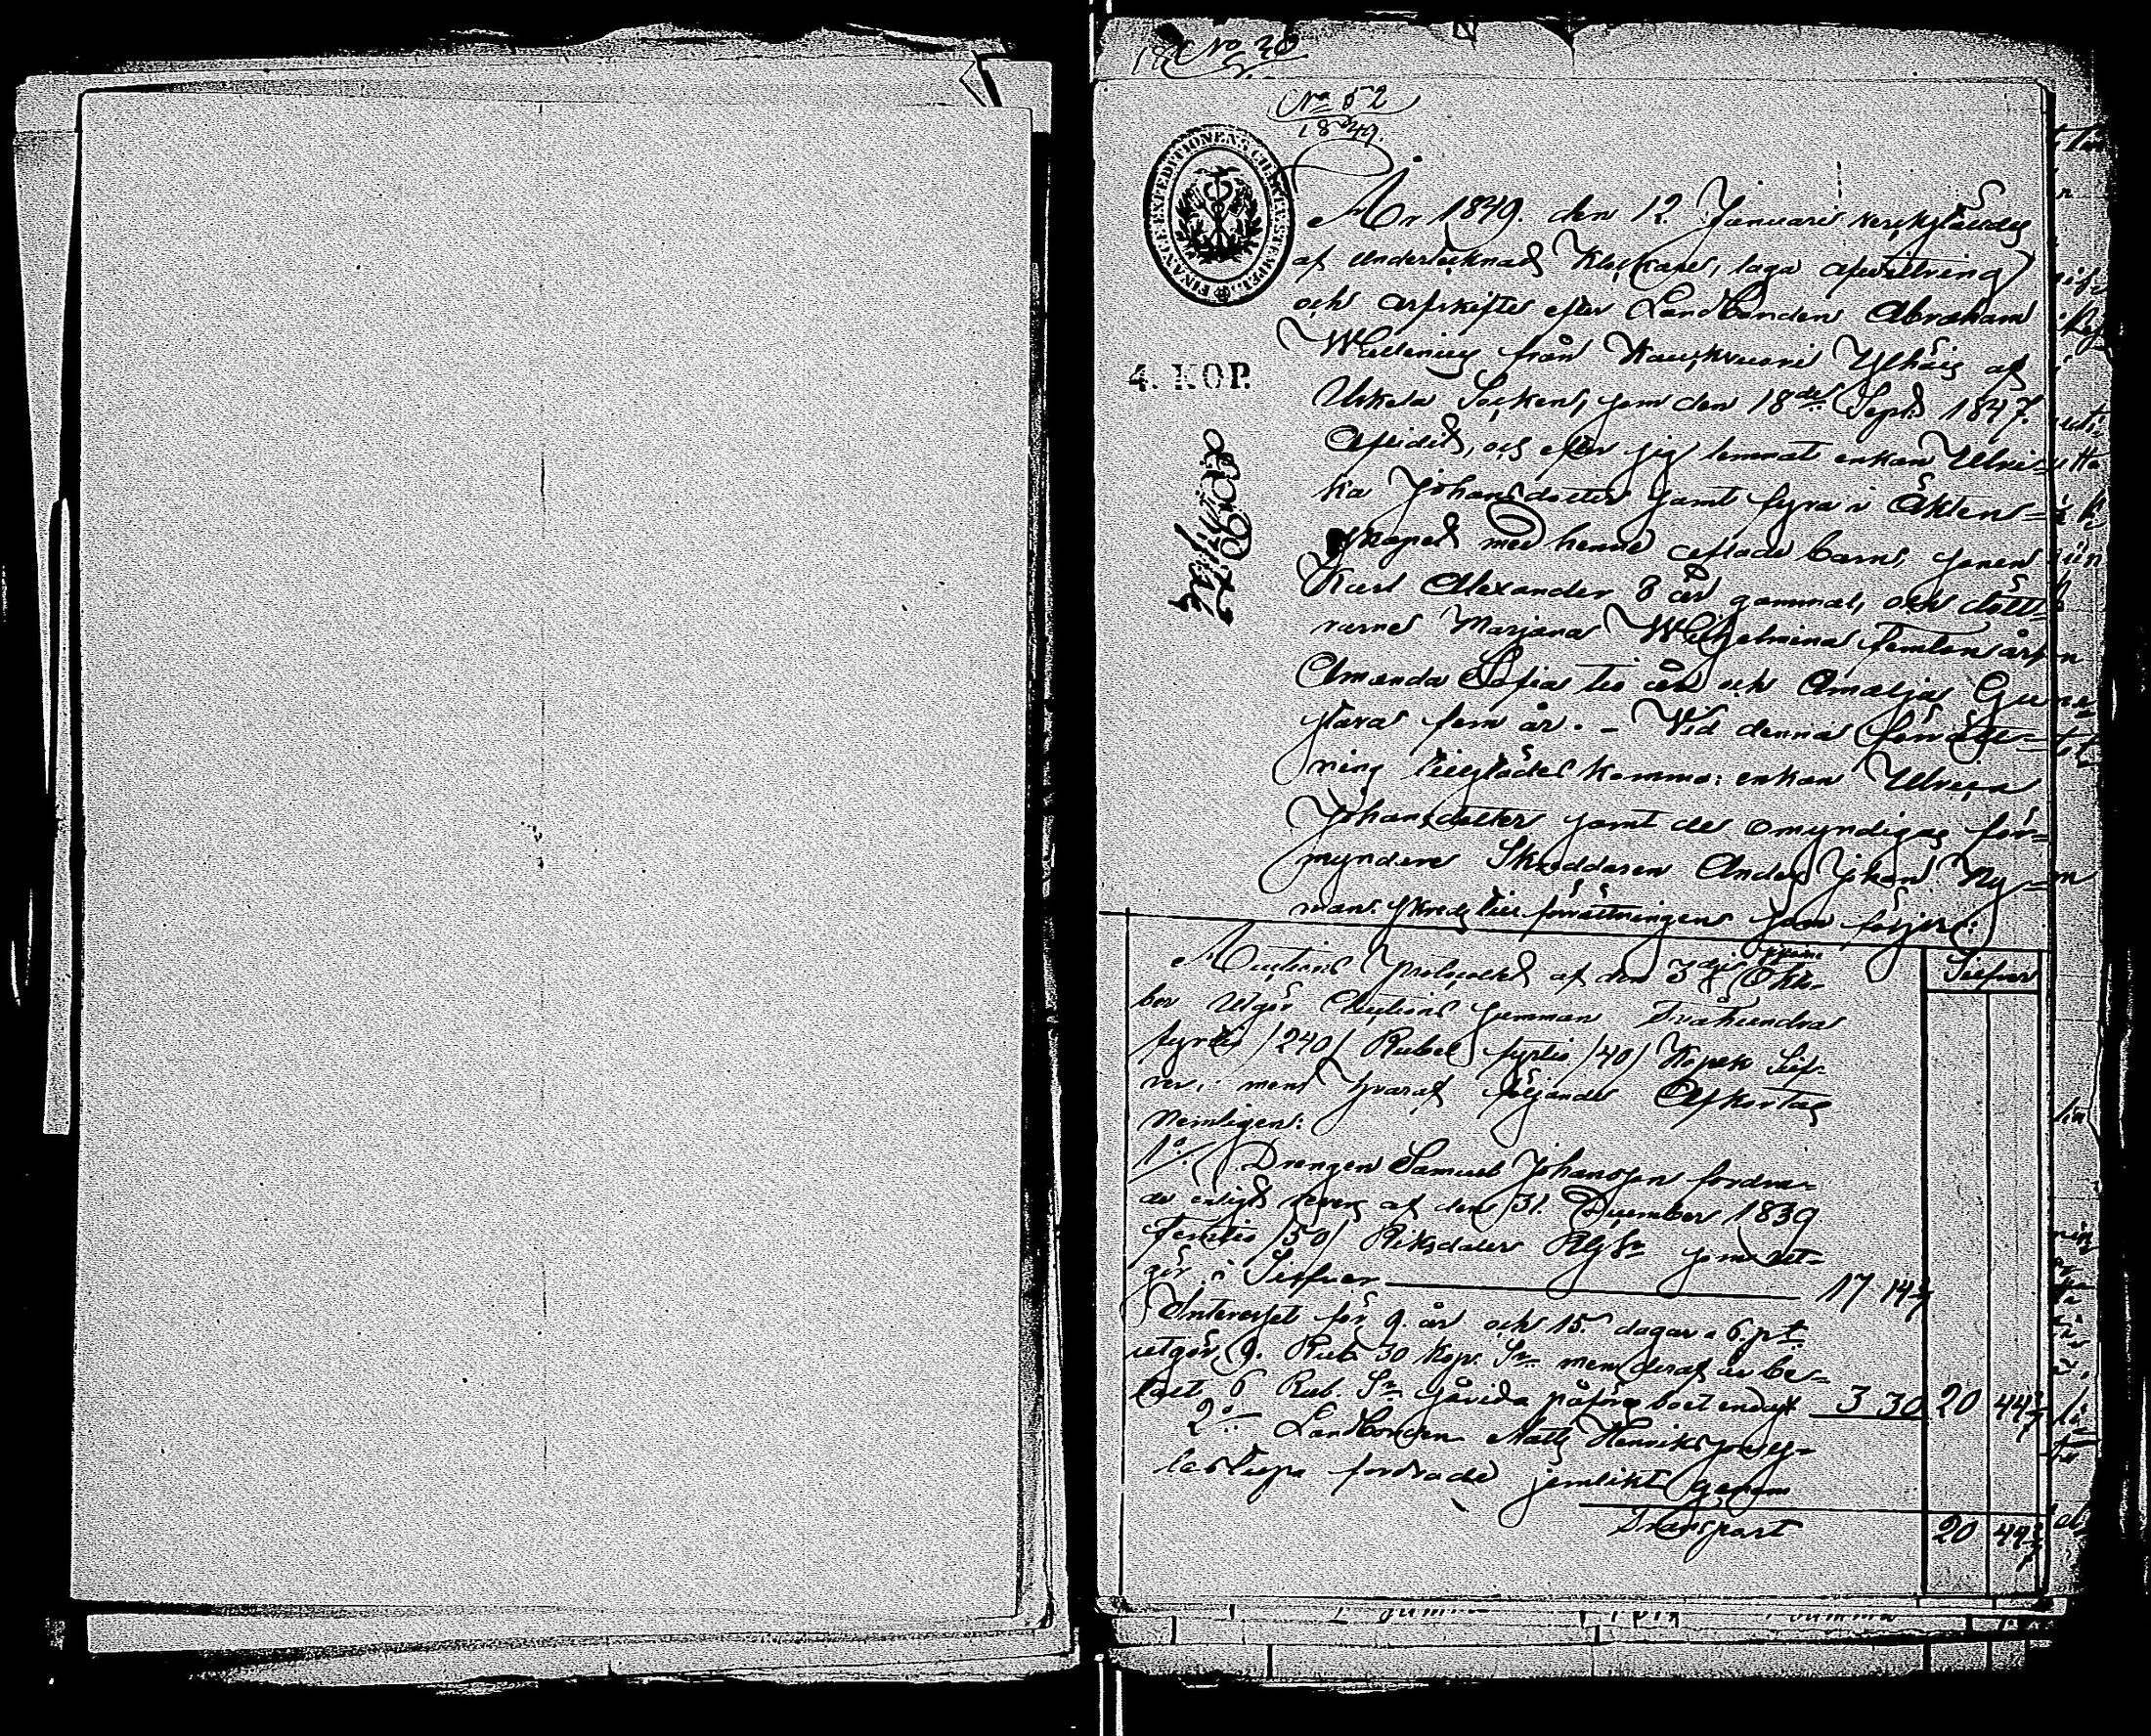 No 20
No 52
1849.
FINANCE EXPEDITIONENS CHARTÆ STÆMPEL
År 1849. den 12 Januari verkstäldes
af undertecknad Klockare, laga afvittring
och arfskifte efter Landbonden Abraham
från Ylhäis af
4. KOP.
Uskela Socken, som den 18de Sept. 1847.
Aflidit, och efter sig lemnat enkan Ulri-
ka Johansdotter samt fyra i Äkten-
skapet med henne aflade barn, sonen
Karl Alexander 8 år gammal, och dött-
rarne Marjana Wilhelmina femton år
Amanda Sofia tio år och Amalja Gu-
stava fem år. - Vid denna förrätt-
ning tillstädes komma: enkan Ulrica
Johansdotter samt de omyndigas för-
myndare Skreddaren Anders Johan Ny-
man. skreds till förrättningen som följer:
Auctions Protocollet af den 3dje Okto-
Silfver
ber utgör Auctions summan Tvåhundra
fyrtio /240/ Rubel fyrtio /40/ Kopek Silf-
ver, men hvaraf följande Afkortas
Nemligen:
1o/. Drengen Samuel Johansson fordra-
de enligt revers af den 31. December 1839
femtio /50/ Riksdaler RGSr som ut-
gör i Silfver 17 14 2/7
Interesset för 9. år och 15. dagar a 6. pt.
utgör 9. Rub. 30 Kop. Sr. men deraf är be-
talt 6 Rub. Sr. såvida påföres boet endast 3 30 20 44 2/7
2o Landbonden Matts Henriksson
fordrade jemlikt genom
Transport 20 44 2/7